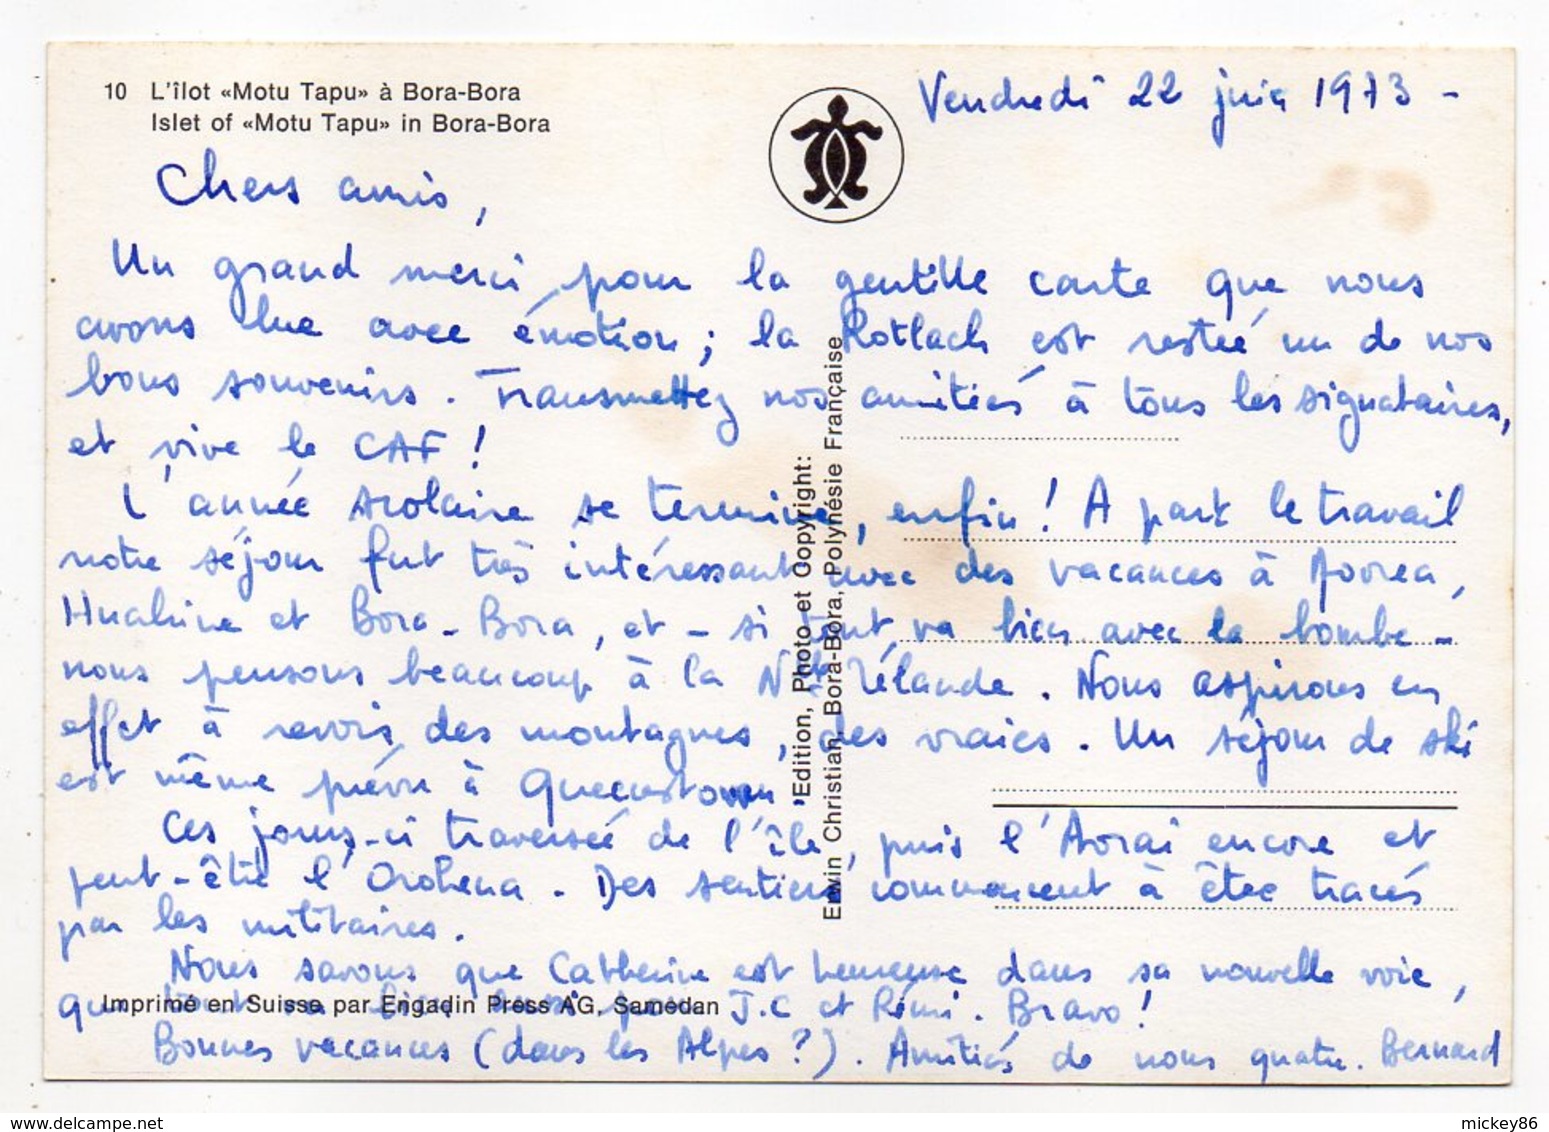 10 L'îlot «Motu Tapu» à Bora-Bora
Islet of «Motu Tapu» in Bora-Bora
Vendredi 22 juin 1973 -
Chers amis,
Un grand merci pour la gentille carte que nous
avons lue avec émotion ; la Rotlach est restée un de nos
bons souvenirs. Transmettez nos amitiés à tous les signataires,
et vive le CAF !
L'année scolaire se termine, enfin ! A part le travail
notre séjour fut très intéressant avec des vacances à Moorea,
Huahine et Bora-Bora, et - si tout va bien avec la bombe -
nous pensons beaucoup à la Nlle Zélande. Nous aspirons en
effet à revoir des montagnes, des vraies. Un séjour de ski
est même prévu à Queenstown.
Ces jours-ci traversée de l'île, puis l'Aorai encore et
peut-être l'Orohena. Des sentiers commencent à être tracés
par les militaires.
Nous savons que Catherine est heureuse dans sa nouvelle voie,
que tout va bien aussi pour J.C et Rémi. Bravo !
Bonnes vacances (dans les Alpes ?). Amitiés de nous quatre. Bernard
Edition, Photo et Copyright:
Erwin Christian, Bora-Bora, Polynésie Française
Imprimé en Suisse par Engadin Press AG, Samedan
mickey86